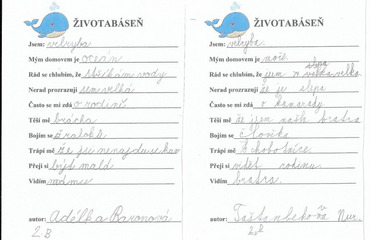 ŽIVOTABÁSEŇ
Jsem: velryba
Mým domovem je oceán
Rád se chlubím, že stříkám vody
Nerad prozrazuji jsem velká
Často se mi zdá o rodině
Těší mě brácha
Bojím se žraloků
Trápí mě že si nenajdu
Přeji si být malá
Vidím
autor: Adélka Baronová
2 B
ŽIVOTABÁSEŇ
Jsem: velryba.
Mým domovem je moře.
Rád se chlubím, že jsem velká
Nerad prozrazuji že je slepá
Často se mi zdá o kamarády
Těší mě že jsem našla bratra
Bojím se člověka
Trápí mě chobotnice
Přeji si vidět rodinu
Vidím bratra.
autor:
2.B